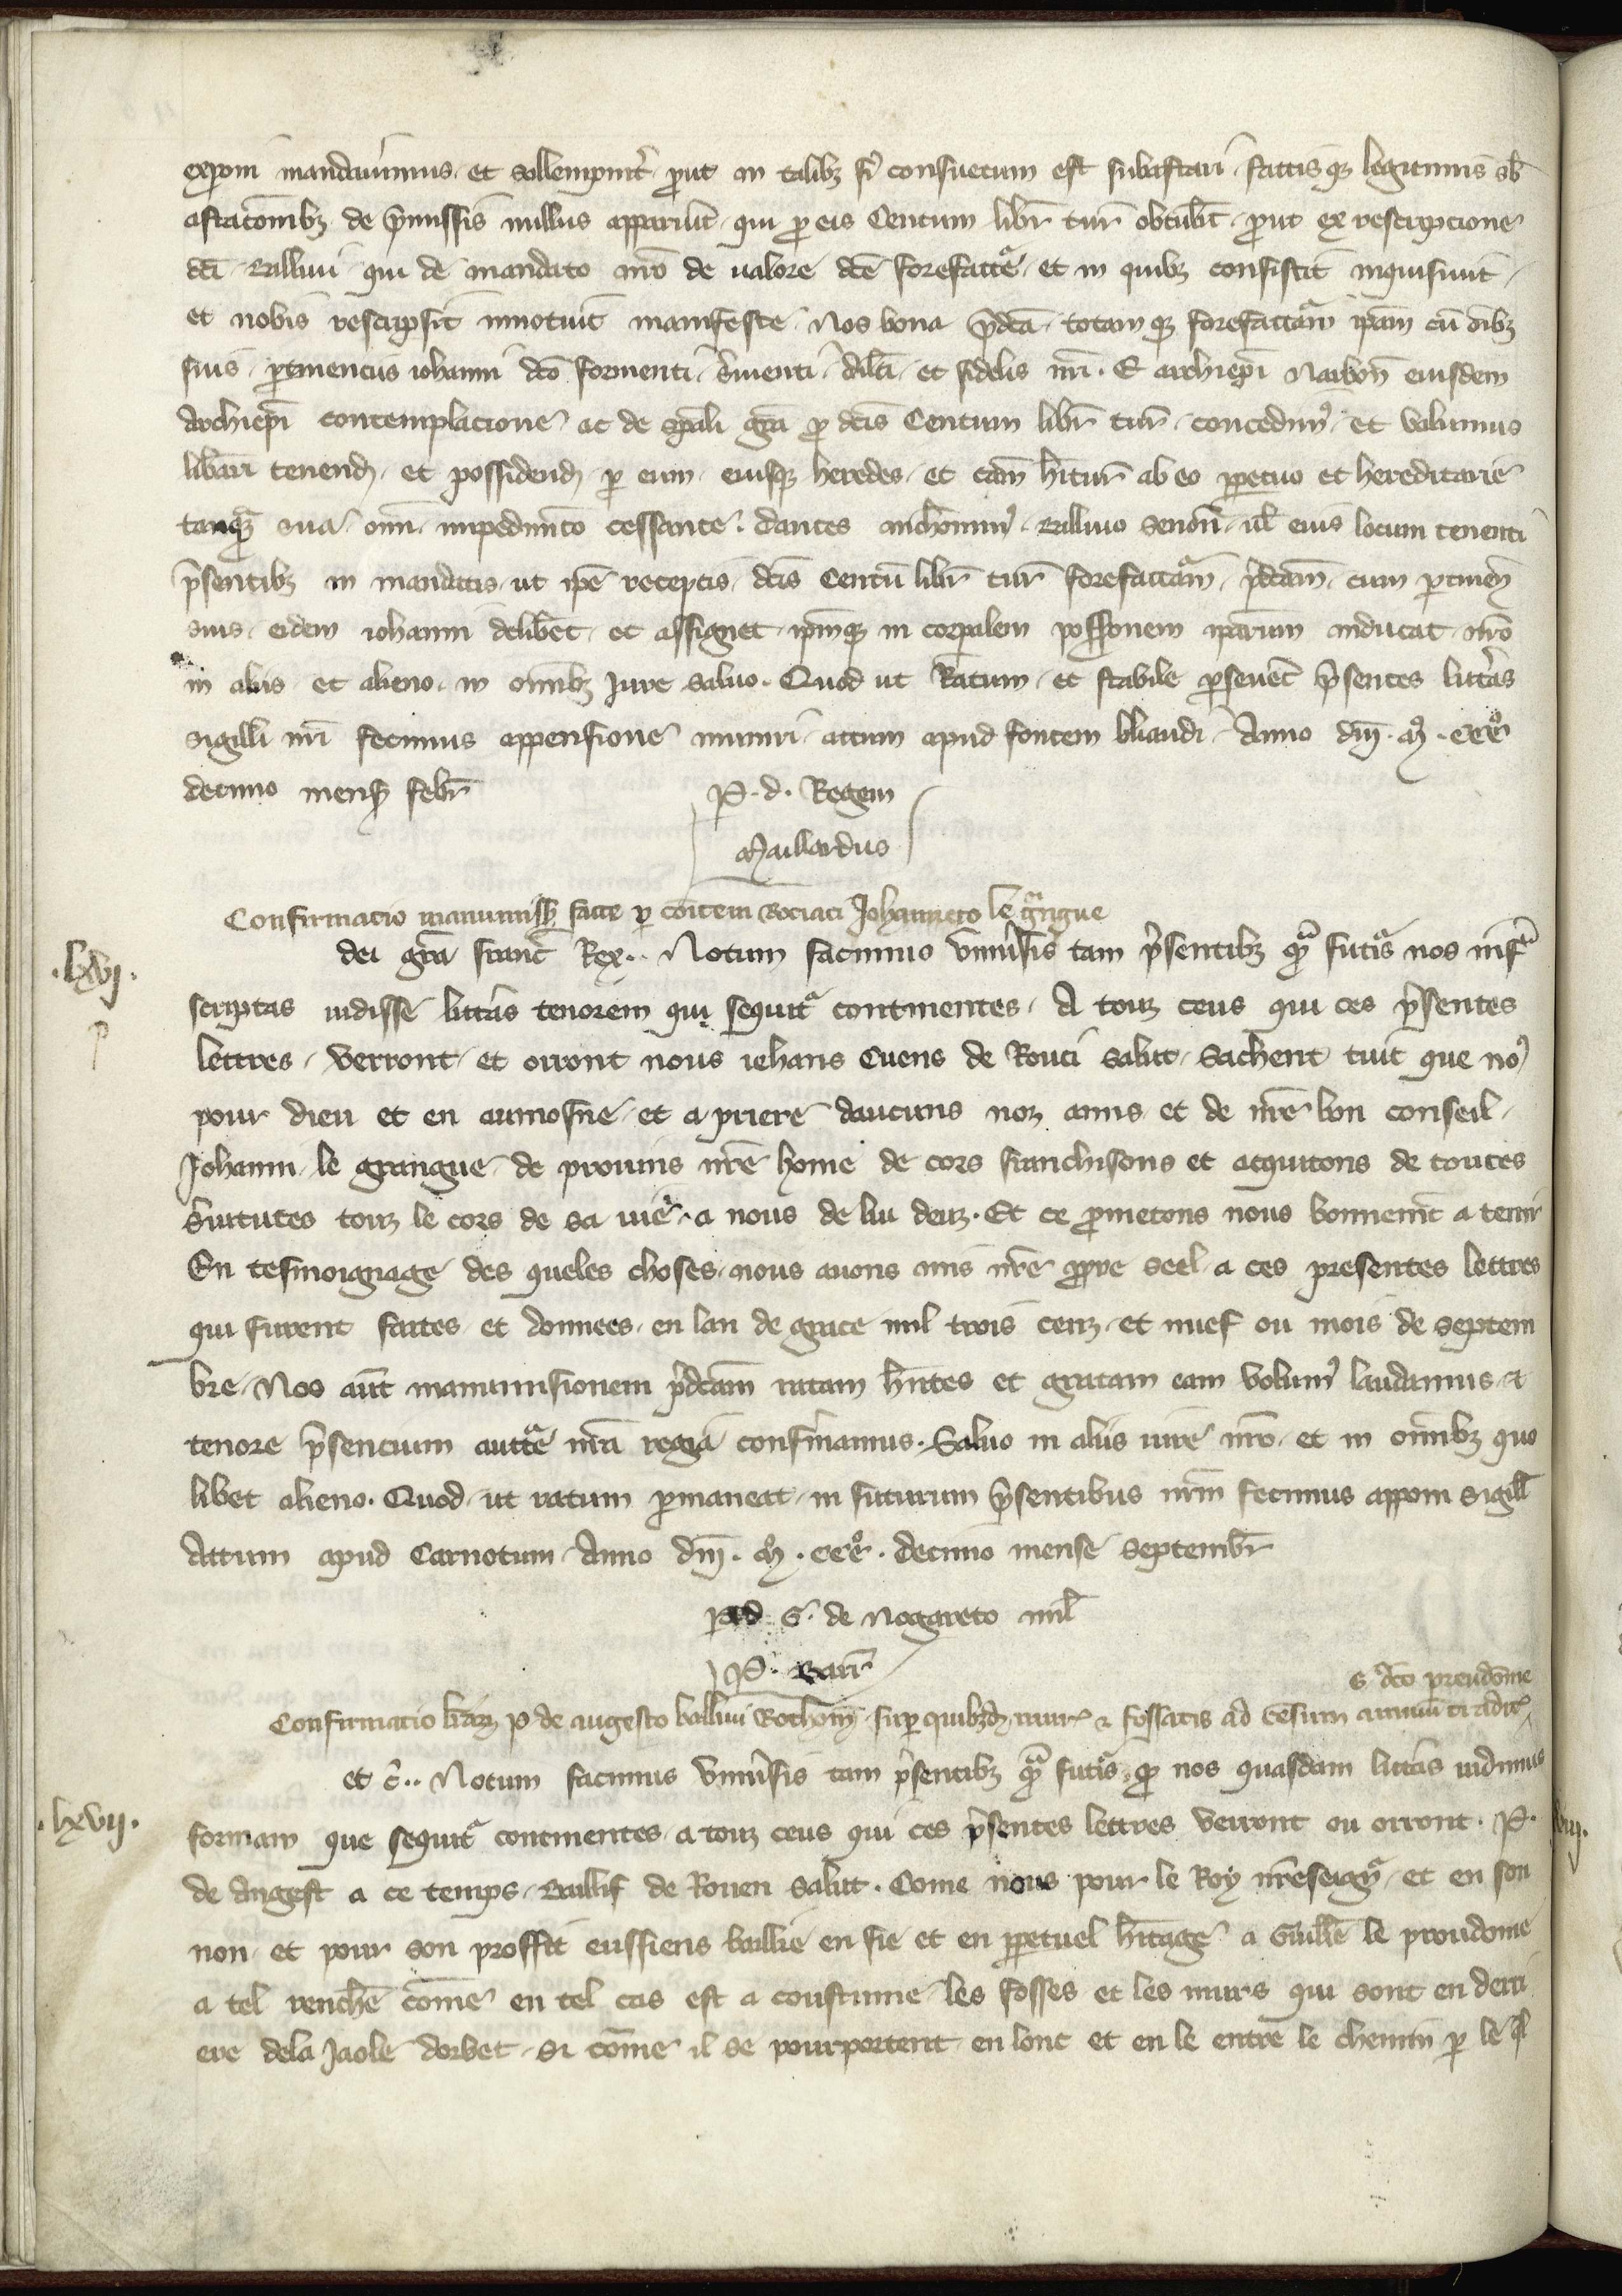 exponi mandauimus et sollempnit̄ ꝓut in talibꝫ fi consuetum est subastari factis qꝫ legitimis sb̄
astatōnibꝫ de p̄missis nullus apparuit qui ꝓ eis Centum libr̄ tur̄ obtulit ꝓut ex rescripcione
dc̄i Balliui qui de mandato nr̄o de ualore dc̄e forefactᵉ et in quibꝫ consistit inquisiuit
et nobis rescripsit innotuit manifeste Nos bona p̄dc̄a totam qꝫ forefactām ip̄am cū oībꝫ
suis ꝑtinenciis iohanni dc̄o formenti s̄uienti dil̄ci et fidelis nr̄i . E archiep̄i Narbon̄ eiusdem
Archiep̄i contemplacione ac de sp̄ali gr̄a ꝓ dc̄is Centum libr̄ tur̄ concedimꝰ et volumus
lib̄ari tenend et possidend ꝑ eum eiusqꝫ heredes et cām h̄itur̄ ab eo ꝑpetuo et hereditarie
tanqᵃꝫ sua om̄i impedim̄to cessante . dantes in Balliuo Senon̄ ul̄ eius locum tenenti
p̄sentibꝫ in mandatis ut ip̄e receptis dc̄is Centū libr̄ tur̄ forefactām p̄dc̄am cum ꝑtineñ
suis eidem iohanni delib̄et et assignet ip̄mqꝫ in corꝑalem poss̄ionem ip̄arum inducat nr̄o
in aliis et alieno in om̄ibꝫ Jure saluo . Quod ut Ratum et stabile ꝑseuet̄ p̄sentes litt̄as
sigilli nr̄i fecimus appensione muniri actum apud fontem bliaudi Anno dn̄i . M̊ . ccc̊
decimo mens̄ febr̄
P . d . Regem
Maillardus
Confirmatio manumiss̄ facte ꝑ com̄item Rociaci Johanneto le gᵃngue
. lxvj .
dei gr̄a franc̄ Rex .. Notum facimus vniūsis tam p̄sentibꝫ qᵃ futᵃis nos infᵃ
scriptas uidisse litt̄as tenorem qui sequitᵃ continentes . A touz ceus qui ces p̄sentes
lettres verront et orront nous iehans Cuens de Rouci salut Sachent tuit que noꝰ
pour dieu et en aumosne et a priere daucuns noz amis et de nr̄e bon conseil
Johanni le grangue de prouins nr̄e home de cors franchisons et acquitons de toutes
s̄uitutes touz le cors de sa uie a nous de lui deuz . Et ce ꝓmetons nous bonnemēt a tenir
En tesmoignage des queles choses nous auons mis nr̄e ꝓpre seel a ces presentes lettres
qui furent faites et donnees en lan de grace mil trois cenz et nuef ou mois de septem
bre Nos aūt manumisionem p̄dc̄am ratam h̄ntes et gratam eam volumꝰ laudamus et
tenore p̄sencium auctᵉ nr̄a regia confirmamus . Saluo in aliis iure nr̄o et in om̄ibꝫ quo
libet alieno . Quod ut ratum ꝑmaneat in futurum p̄sentibus nr̄m fecimus apponi sigill̄
Actum apud Carnotum Anno dn̄i . M̊ . ccc̊ . decimo mense Septembr̄
P d G . de Nogareto mil̄
P . Barr̄
G dc̄o preudōme
Confirmatio lr̄arꝫ P de augesto balliui Rothom̄ sup quibꝰd murꝭ et fossatis ad cēsum annuū tradit
. lxvij .
et c̄ .. Notum facimus vniūsis tam p̄sentibꝫ qᵃ futᵃis qᵈ nos quasdam litt̄as uidimus
formam que sequitᵃ continentes a touz ceus qui ces p̄sentes lettres verront ou orront . P .
de Angest a ce temps Baillif de Rouen salut . Come nous pour le Roy nr̄eseignᵃ et en son
non et pour son proffit eussiens baillie en fie et en ꝑpetuel h̄itage a Guill̄e le proudome
a tel renchē cōme en tel cas est a coustume les fosses et les murs qui sont en derri
ere dela Jaole dorbet si cōme il se pourportent en lonc et en le entre le chemin ꝑ le ql̄